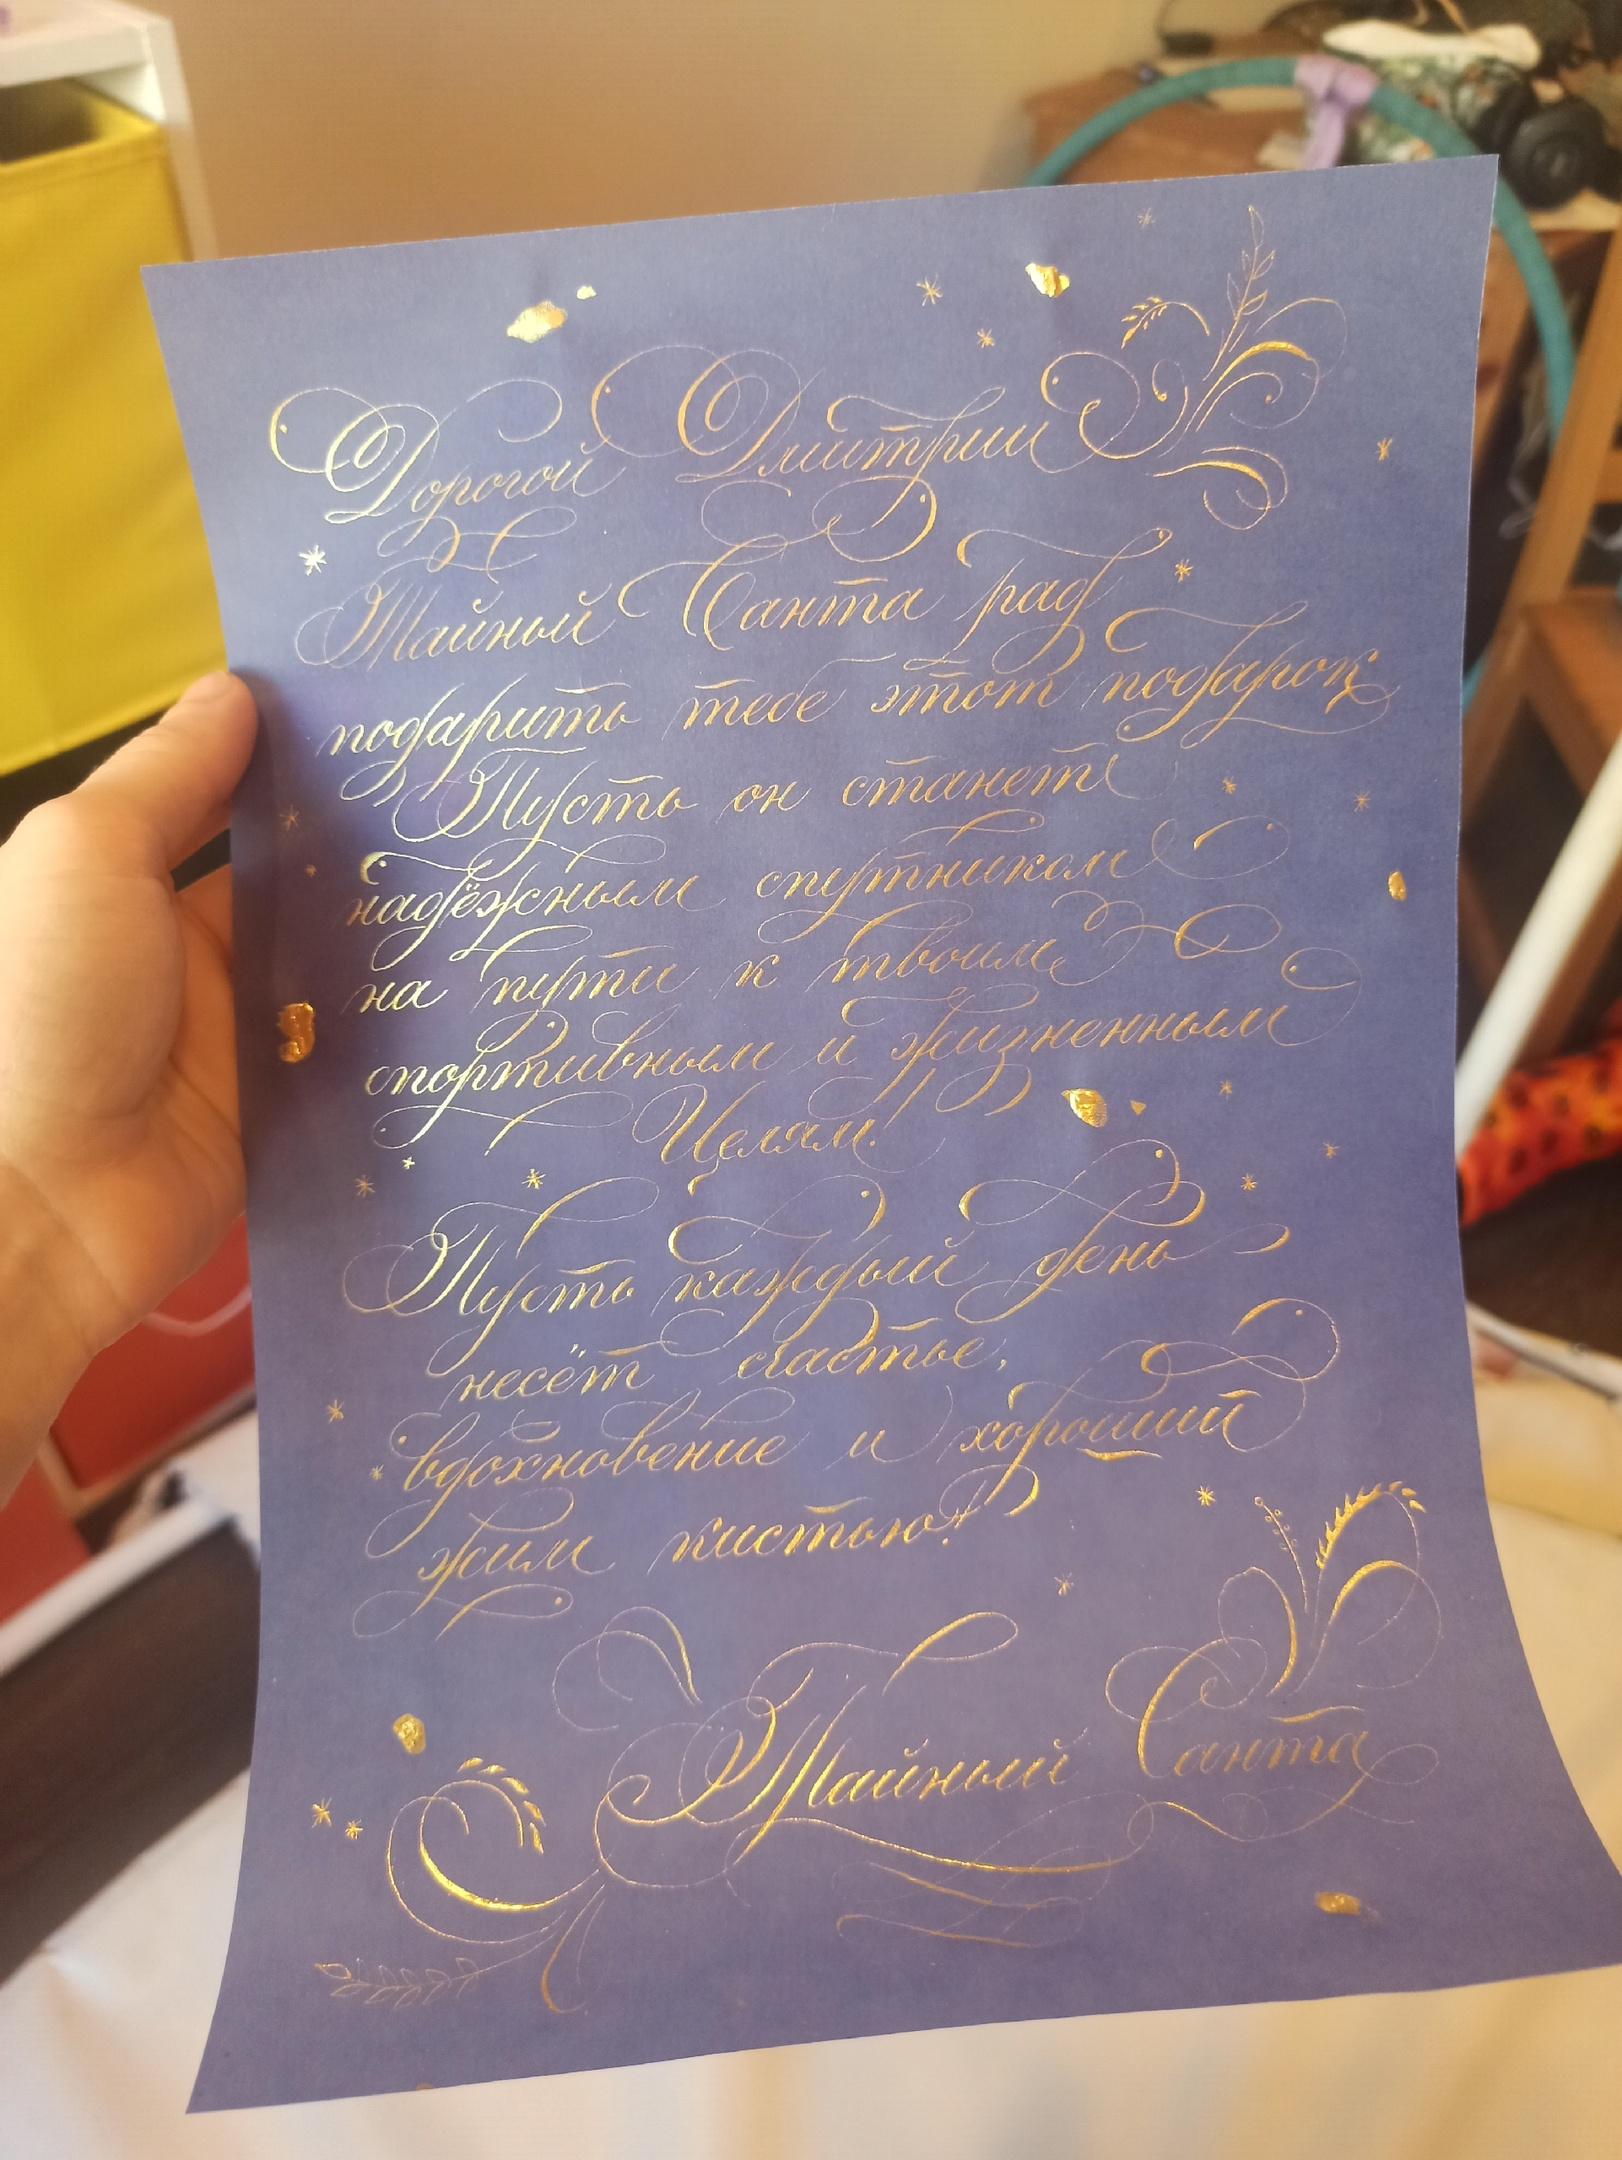 Дорогой Дмитрий
Тайный Санта рад
подарить тебе этот подарок
Пусть он станет
надёжным спутником
на пути к твоим
спортивным и жизненным
Целям!
Пусть каждый день
несёт счастье,
вдохновение и хороший
жим кистью!
Тайный Санта